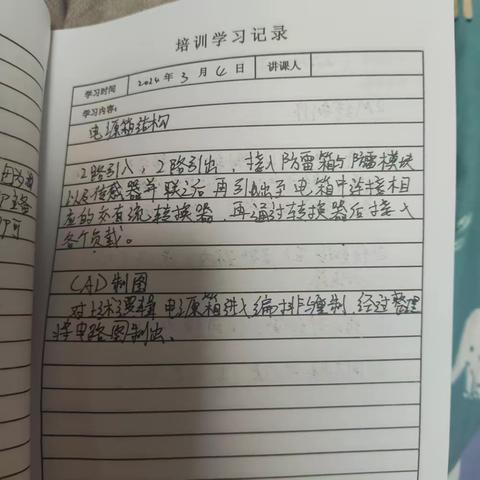 培训学习记录
学习时间 2024年3月4日 讲课人
学习内容:
电源箱结构
2路引入，2路引出，接入防雷箱与防雷模块
以及传感器并联之后再引出了电箱中连接相
应的交直流转换器，再通过转换器后接入
各个负载。
CAD制图
对上述逻辑电源箱进入编排与重制，经过整理
将电路图制出。